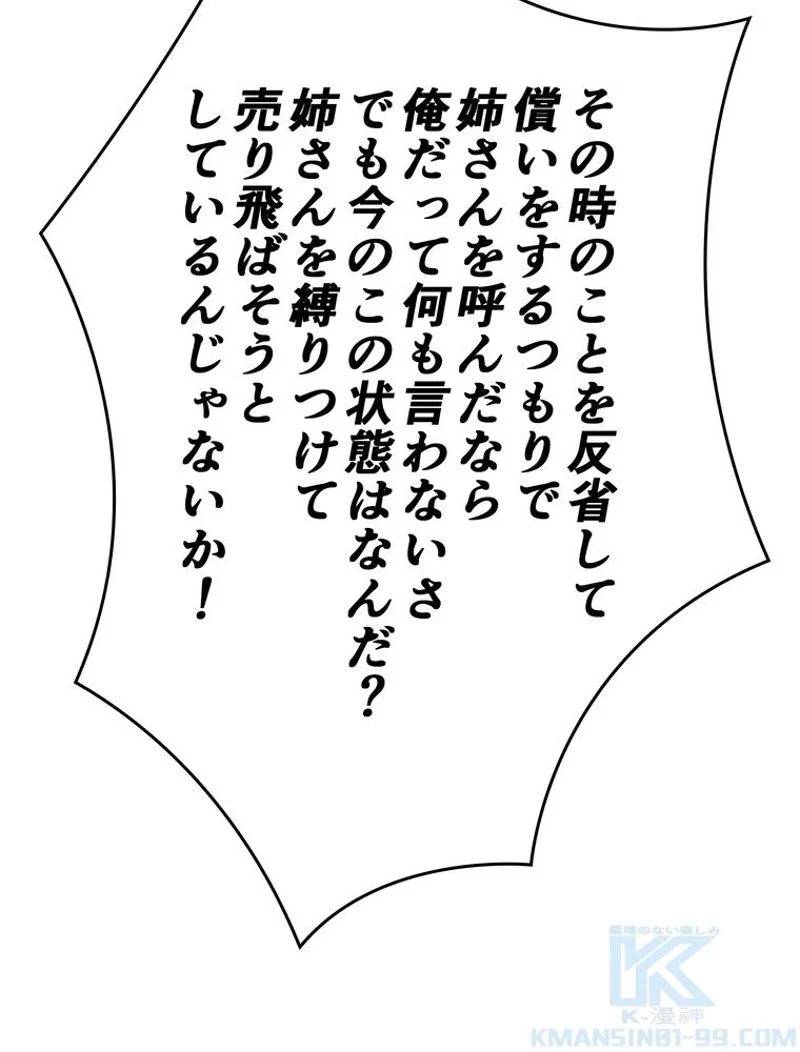 その時のことを反省して
償いをするつもりで
姉さんを呼んだなら
俺だって何も言わないさ
でも今のこの状態はなんだ？
姉さんを縛りつけて
売り飛ばそうと
しているんじゃないか！
K-漫神
KMANSIN01-99.COM